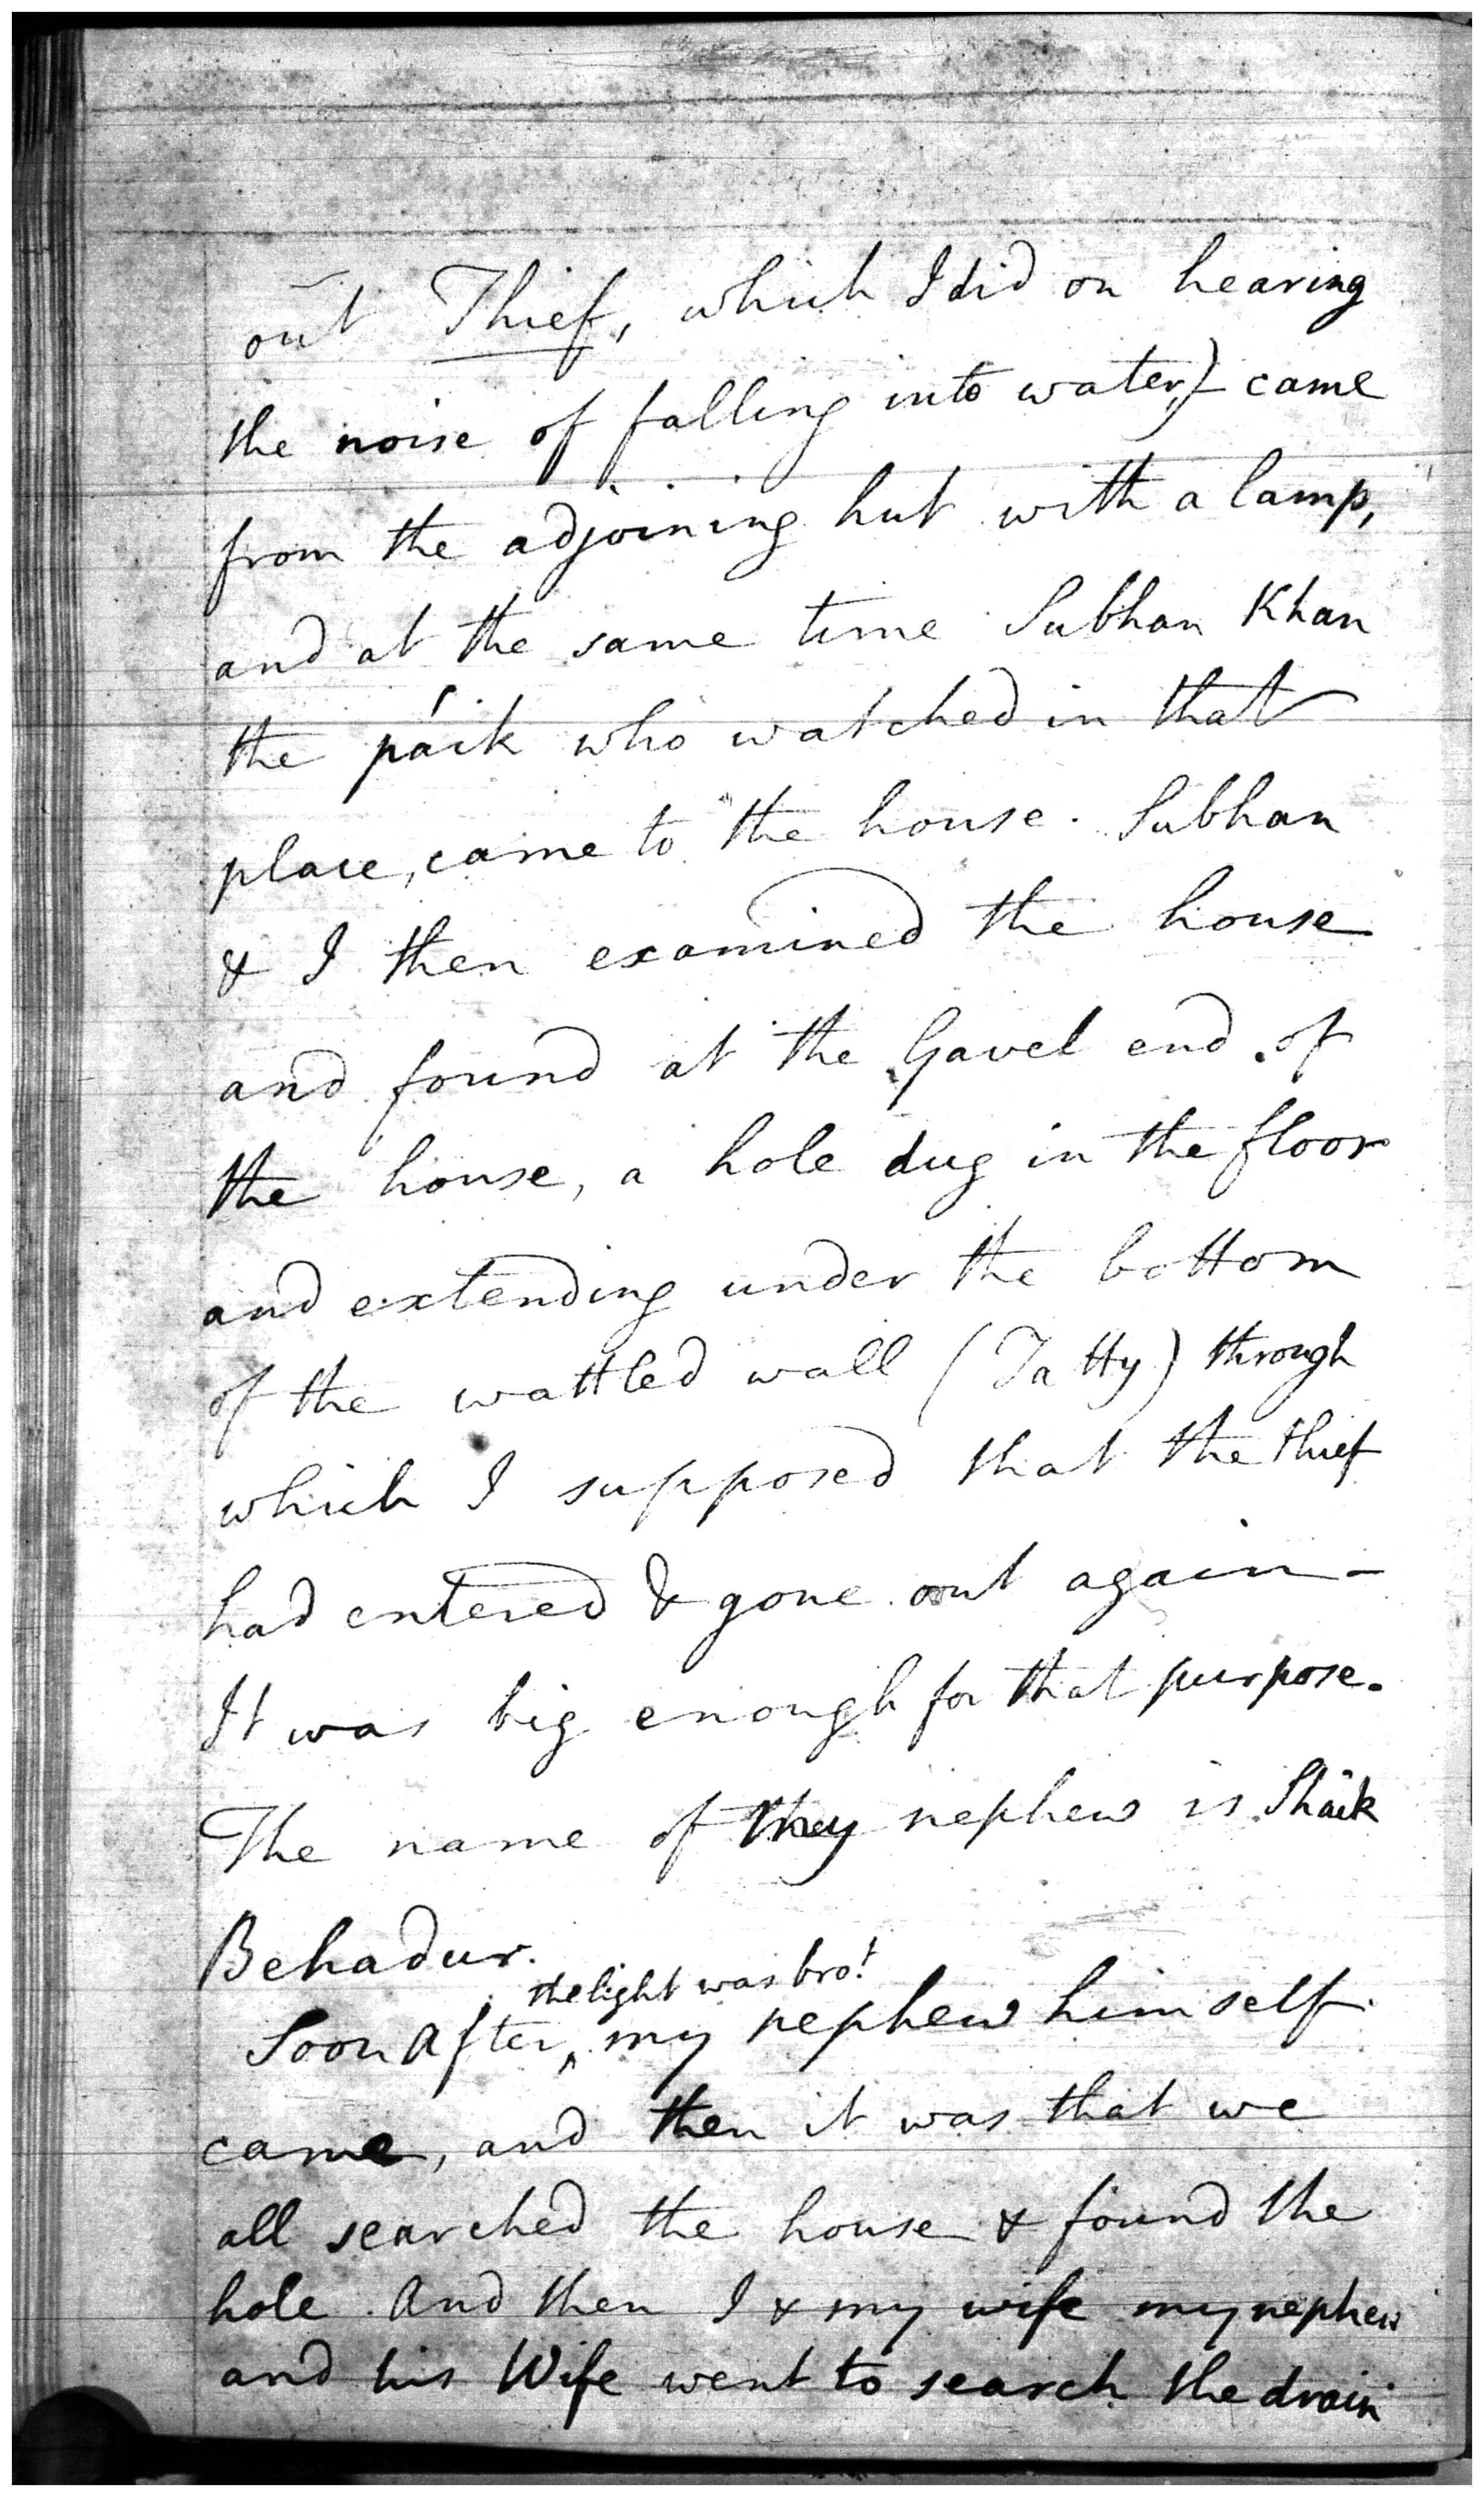 out Thief, which I did on hearing
the noise of falling into water,) came
from the adjoining hut with a lamp,
and at the same time Subhan Khan
the páik who watched in that
place, came to the house. Subhan
& I then examined the house
and found at the Gavel end of
the house, a hole dug in the floor
and extending under the bottom
of the wattled wall (Tatty) through
which I supposed that the thief
had entered & gone out again –
It was big enough for that purpose.
The name of my nephew is Shaik
Behadur.
the light was bro!
Soon After ‸ my nephew himself
came, and then it was that we
all searched the house & found the
hole. And then I & my wife my nephew
and his Wife went to search the drain